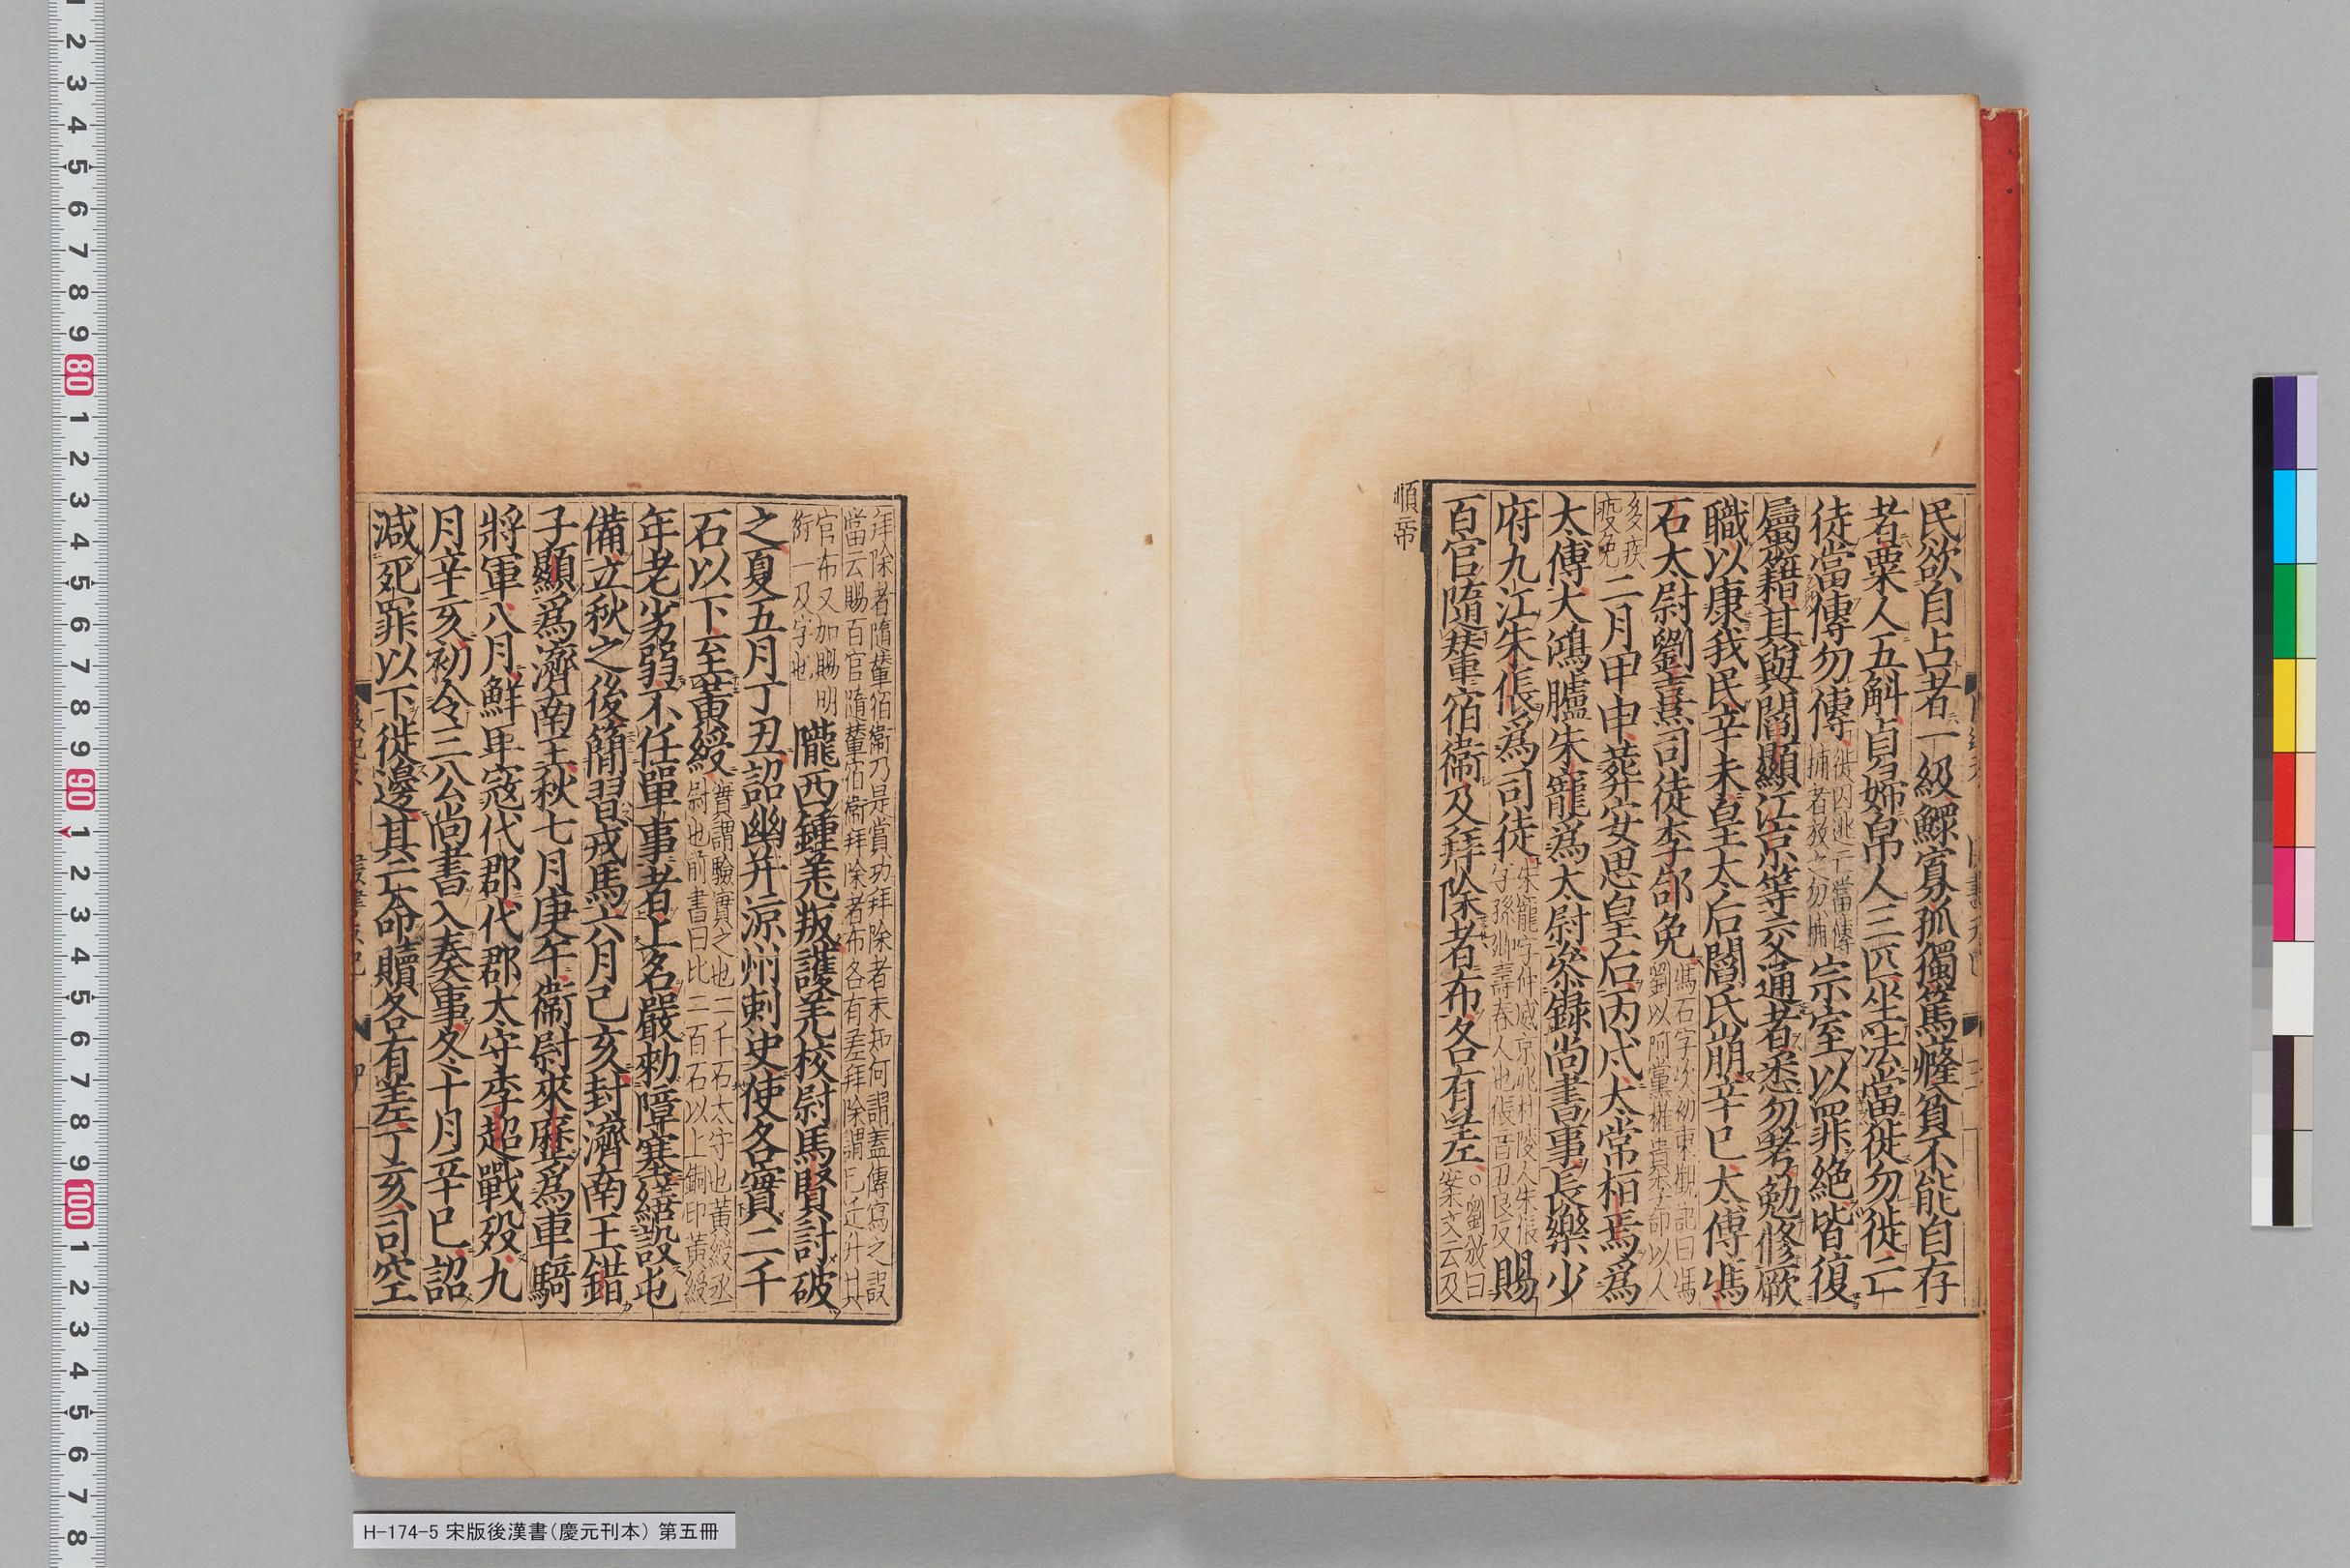 民欲自占者一級鰥寡孤獨篤癃貧不能自存
者粟人五斛貞婦帛人三匹坐法當徙勿徙亡
徒當傳勿傳徒囚逃亡當傳捕者放之勿捕宗室以罪絶皆復
屬籍其與閻顯江京等交通者悉勿考勉修厥
職以康我民辛未皇太后閻氏崩辛巳太傅馮
石太尉劉熹司徒李郃免馮石字次初東觀記曰馮劉以阿黨權貴李郃以人
多疾疫免二月甲申葬安思皇后丙戌太常桓焉爲
太傅大鴻臚朱寵爲太尉參錄尚書事長樂少
府九江朱倀爲司徒朱寵字仲威京兆杜陵人朱倀字孫卿壽春人也倀音丑良反賜
百官隨輦宿衞及拜除者布各有差○劉攽曰案文云及
順帝
拜除者隨輦宿衞乃是賞功拜除者未知何謂蓋傳寫之誤
當云賜百官隨輦宿衞拜除者布各有差拜除謂已迁升其
官布又加賜明衍一及字也隴西鍾羌叛護羌校尉馬賢討破
之夏五月丁丑詔幽并涼州刺史使各實二千
石以下至黃綬實謂驗實之也二千石太守也黃綬丞尉也前書曰比二百石以上銅印黃綬
年老劣弱不任軍事者上名嚴勑障塞繕設屯
備立秋之後簡習戎馬六月己亥封濟南王錯
子顯爲濟南王秋七月庚午衞尉來歷爲車騎
將軍八月鮮卑寇代郡代郡太守李超戰殁九
月辛亥初令三公尚書入奏事冬十月辛巳詔
減死罪以下徙邊其亡命贖各有差丁亥司空
H-174-5 宋版後漢書(慶元刊本) 第五冊
2
3
4
5
6
7
8
9
80
1
2
3
4
5
6
7
8
9
90
1
2
3
4
5
6
7
8
9
100
1
2
3
4
5
6
7
8